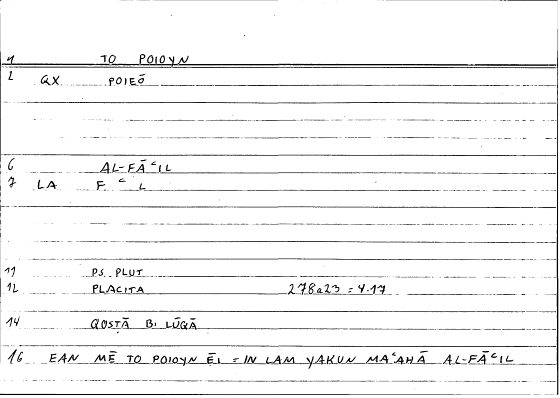 1 TO POIOYN
2 GX POIEŌ
6 AL-FĀʿIL
7 LA F ʿ L
11 PS. PLUT
12 PLACITA 278a23 = 4.17
14 QOSṬĀ B. LŪQĀ
16 EAN MĒ TO POIOYN ĒI = IN LAM YAKUN MAʿAHĀ AL-FĀʿIL